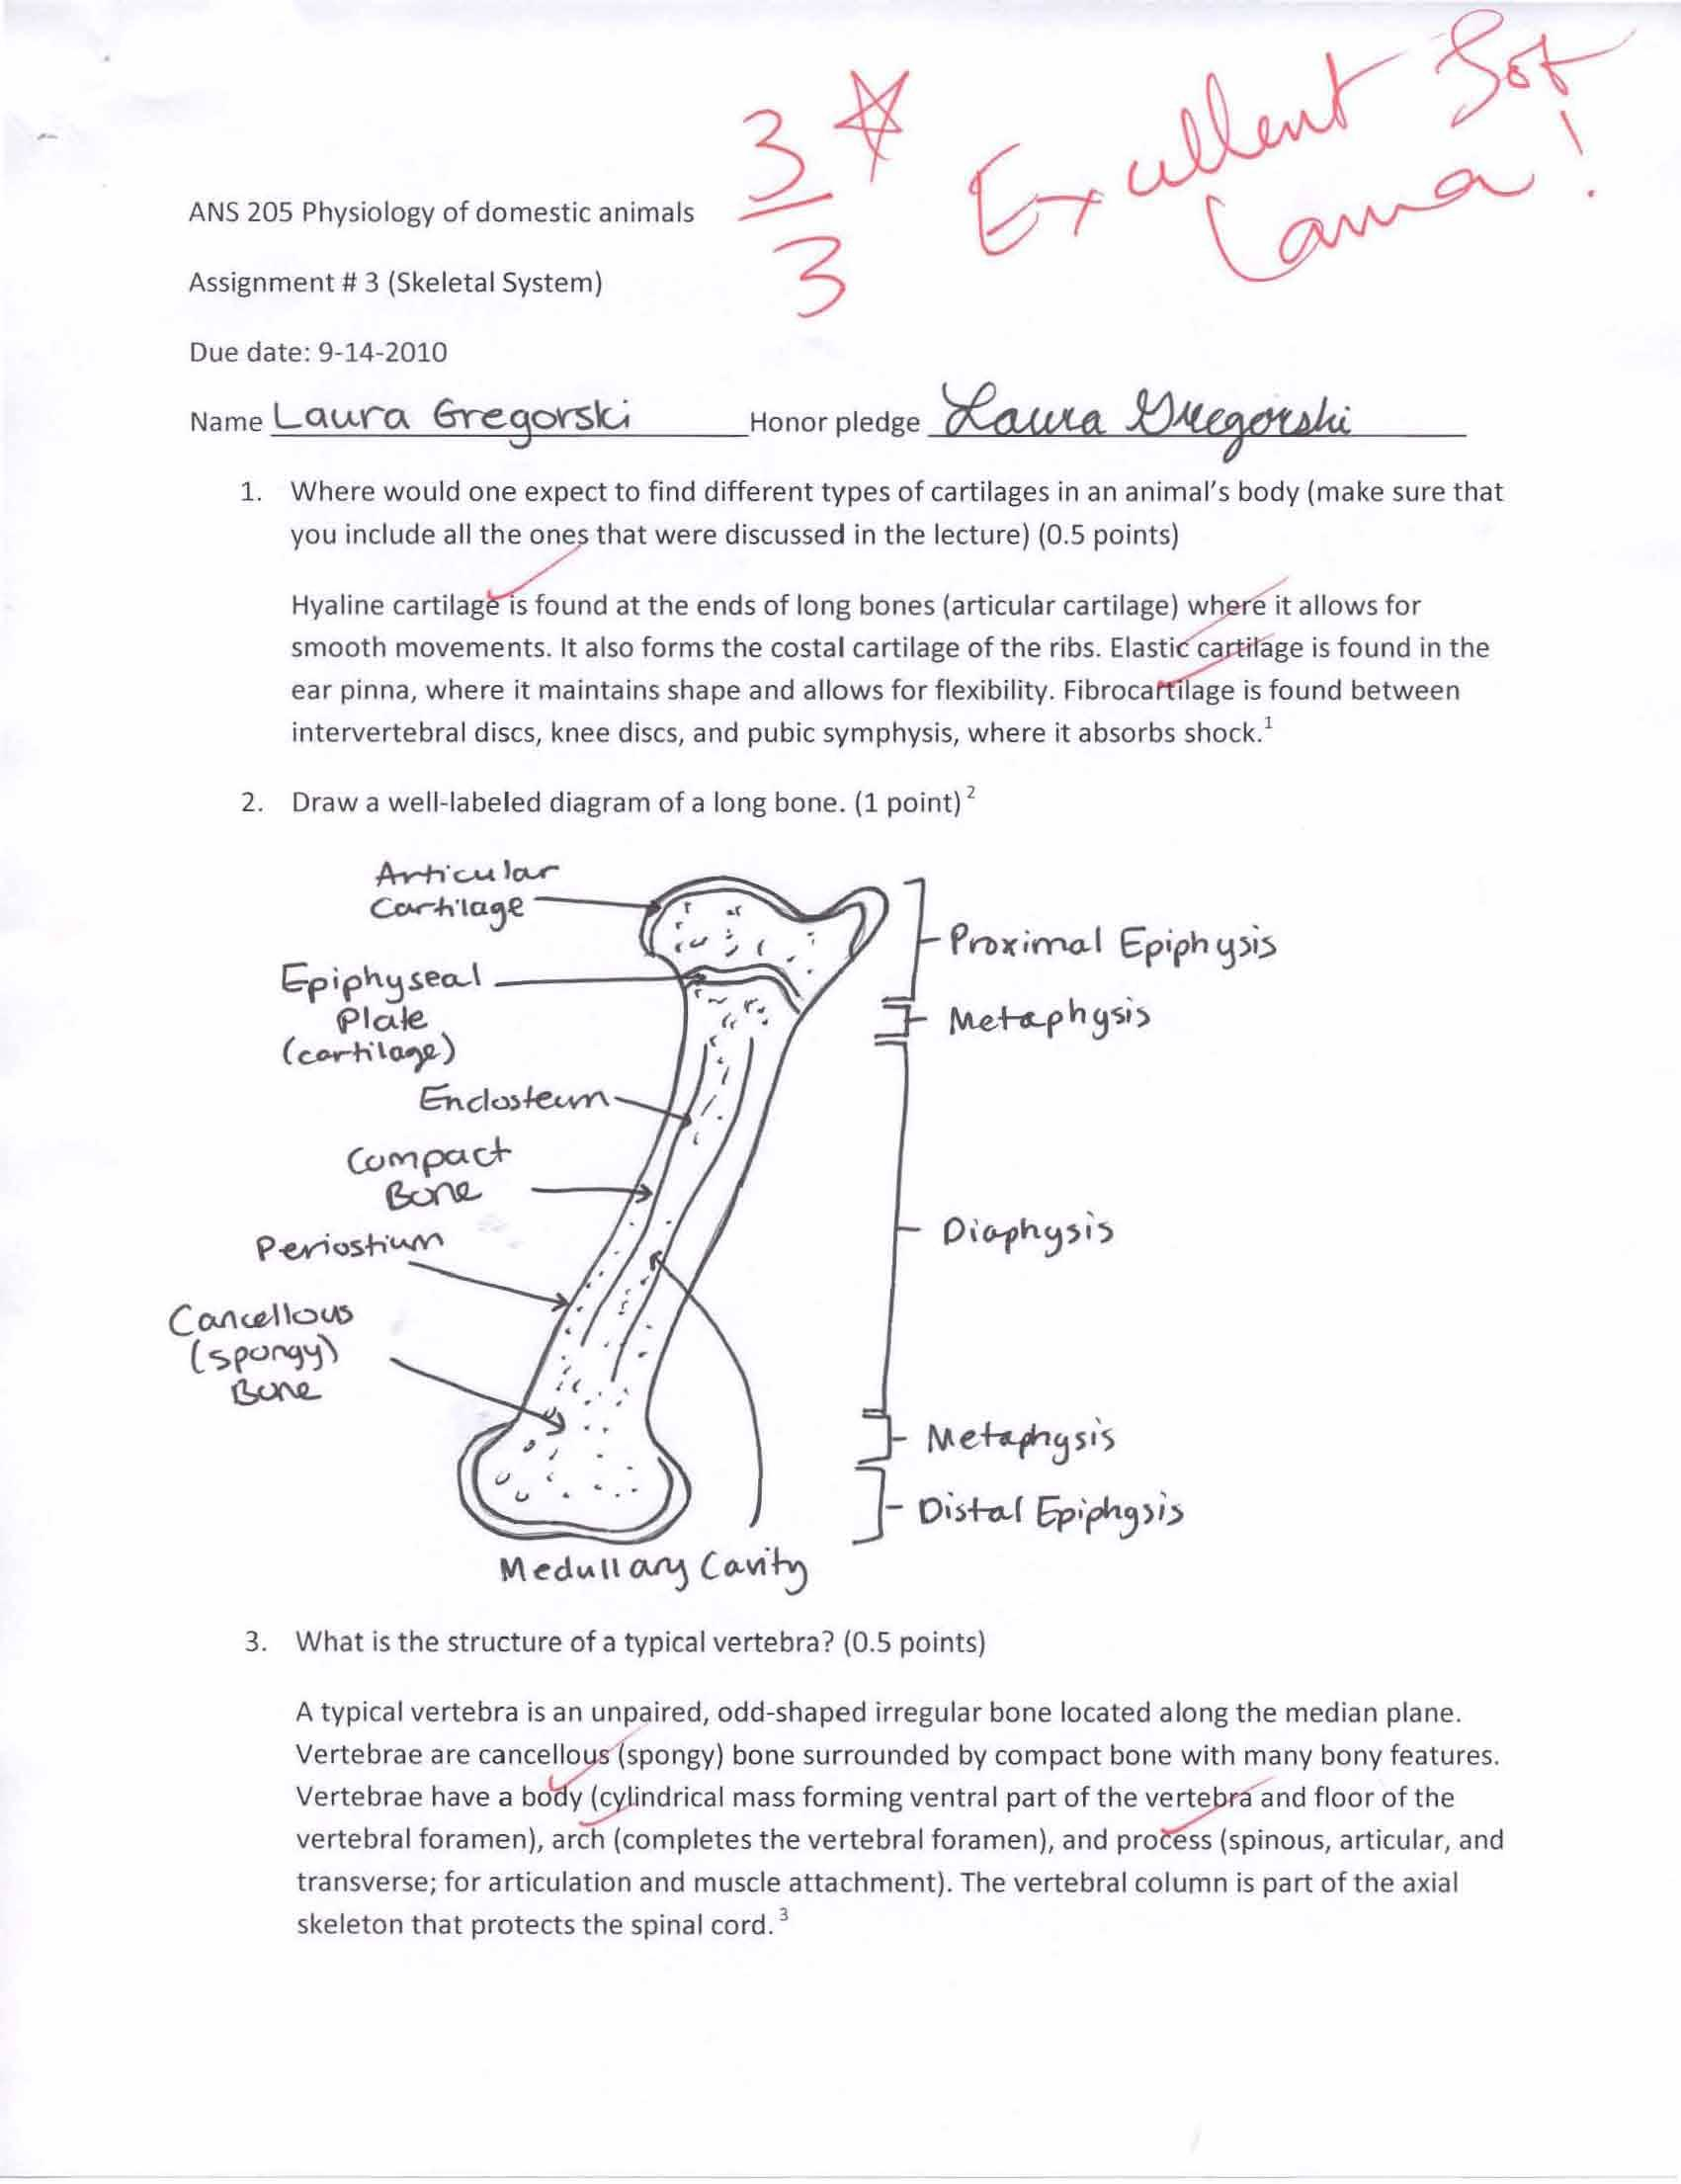 3/3 Excellent Job Laura!
ANS 205 Physiology of domestic animals
Assignment # 3 (Skeletal System)
Due date: 9-14-2010
Name Laura Gregorski Honor pledge Laura Gregorski
1. Where would one expect to find different types of cartilages in an animal's body (make sure that
you include all the ones that were discussed in the lecture) (0.5 points)
Hyaline cartilage is found at the ends of long bones (articular cartilage) where it allows for
smooth movements. It also forms the costal cartilage of the ribs. Elastic cartilage is found in the
ear pinna, where it maintains shape and allows for flexibility. Fibrocartilage is found between
intervertebral discs, knee discs, and pubic symphysis, where it absorbs shock.¹
2. Draw a well-labeled diagram of a long bone. (1 point)²
Articular
Cartilage
Proximal Epiphysis
Epiphyseal
Plate
(cartilage)
Metaphysis
Endosteum
Compact
Bone
Periostium
Diaphysis
Cancellous
(spongy)
Bone
Metaphysis
Distal Epiphysis
Medullary Cavity
3. What is the structure of a typical vertebra? (0.5 points)
A typical vertebra is an unpaired, odd-shaped irregular bone located along the median plane.
Vertebrae are cancellous (spongy) bone surrounded by compact bone with many bony features.
Vertebrae have a body (cylindrical mass forming ventral part of the vertebra and floor of the
vertebral foramen), arch (completes the vertebral foramen), and process (spinous, articular, and
transverse; for articulation and muscle attachment). The vertebral column is part of the axial
skeleton that protects the spinal cord.³